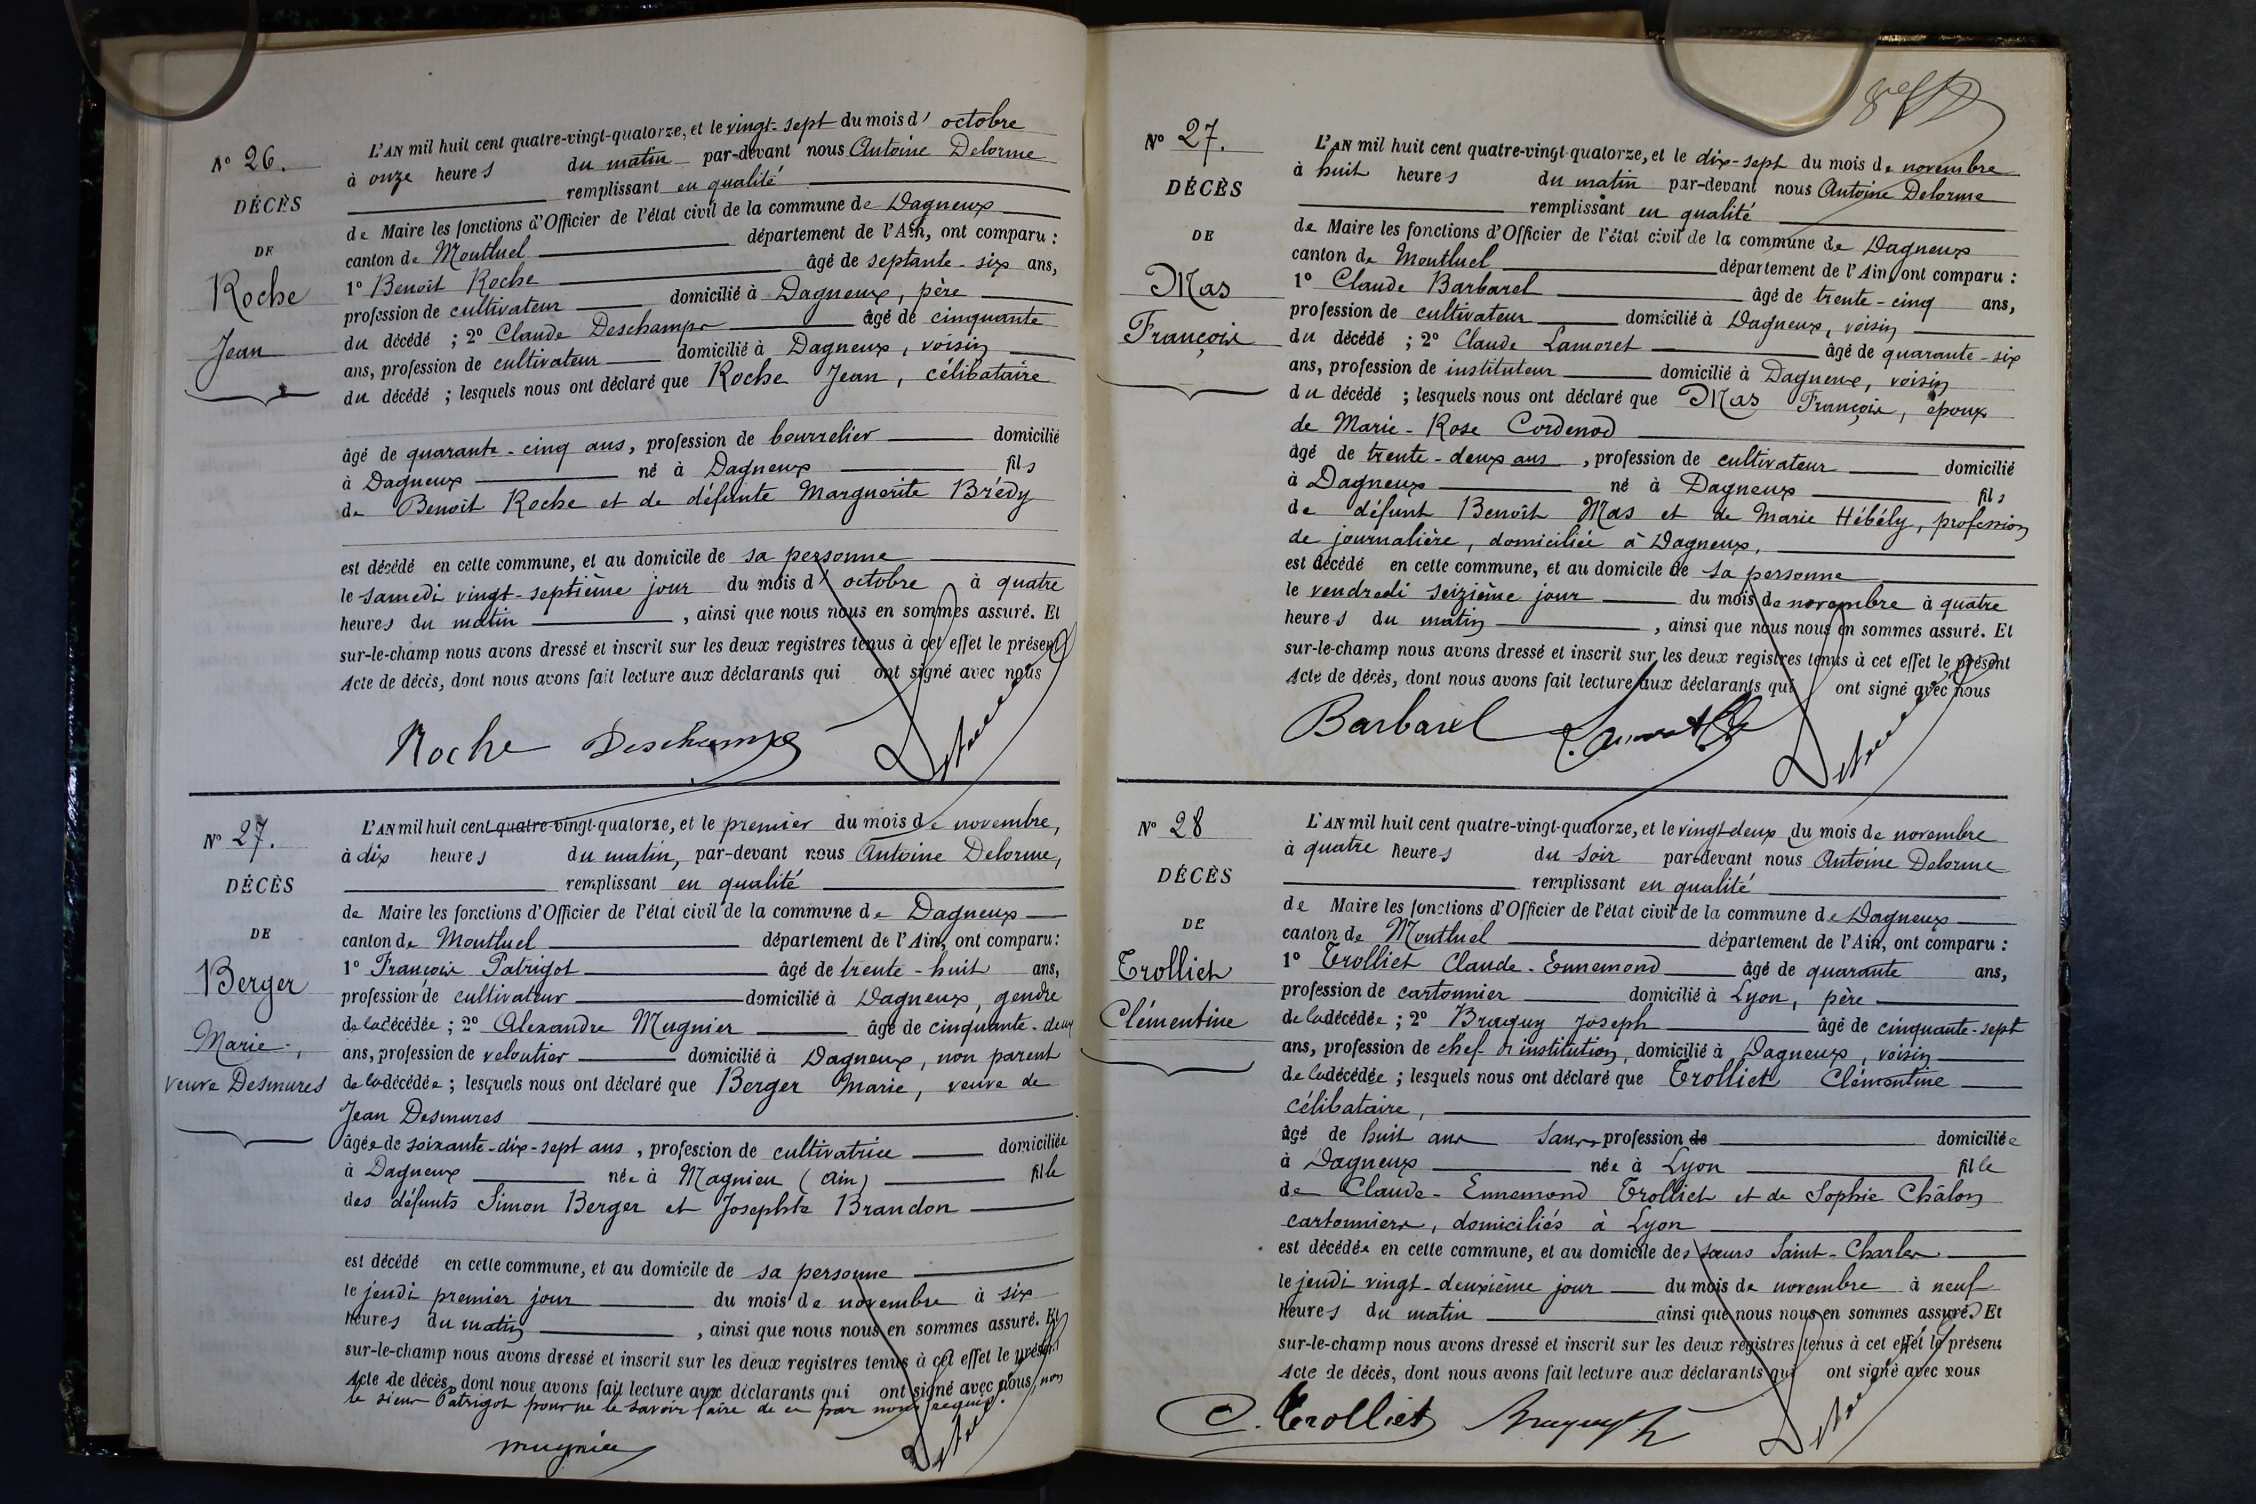 N° 26.
DÉCÈS
DE
Roche
Jean
L'AN mil huit cent quatre-vingt-quatorze, et le vingt-sept du mois d' octobre
à onze heures du matin par-devant nous Antoine Delorme
remplissant en qualité
de Maire les fonctions d'Officier de l'état civil de la commune de Dagneux
canton de Montluel département de l'Ain, ont comparu :
1° Benoit Roche âgé de septante-six ans,
profession de cultivateur domicilié à Dagneux, père
du décédé ; 2° Claude Deschamps âgé de cinquante
ans, profession de cultivateur domicilié à Dagneux, voisin
du décédé ; lesquels nous ont déclaré que Roche Jean, célibataire
âgé de quarante-cinq ans, profession de bourrelier domicilié
à Dagneux né à Dagneux fils
de Benoît Roche et de défunte Marguerite Brédy
est décédé en cette commune, et au domicile de sa personne
le samedi vingt-septième jour du mois d' octobre à quatre
heures du matin, ainsi que nous nous en sommes assuré. Et
sur-le-champ nous avons dressé et inscrit sur les deux registres tenus à cet effet le présent
Acte de décès, dont nous avons fait lecture aux déclarants qui ont signé avec nous
Roche Deschamps Delorme
N° 27.
DÉCÈS
DE
Berger
Marie,
veuve Desmures
L'AN mil huit cent quatre-vingt-quatorze, et le premier du mois de novembre,
à dix heures du matin, par-devant nous Antoine Delorme,
remplissant en qualité
de Maire les fonctions d'Officier de l'état civil de la commune de Dagneux
canton de Montluel département de l'Ain, ont comparu :
1° François Patrigot âgé de trente-huit ans,
profession de cultivateur domicilié à Dagneux, gendre
de la décédée ; 2° Alexandre Mugnier âgé de cinquante-deux
ans, profession de veloutier domicilié à Dagneux, non parent
de la décédée ; lesquels nous ont déclaré que Berger Marie, veuve de
Jean Desmures
âgée de soixante-dix-sept ans, profession de cultivatrice domiciliée
à Dagneux née à Magnieu (Ain) fille
des défunts Simon Berger et Josephte Brandon
est décédé en cette commune, et au domicile de sa personne
le jeudi premier jour du mois de novembre à six
heures du matin, ainsi que nous nous en sommes assuré. Et
sur-le-champ nous avons dressé et inscrit sur les deux registres tenus à cet effet le présent
Acte de décès, dont nous avons fait lecture aux déclarants qui ont signé avec nous, non
le sieur Patrigot pour ne le savoir faire de ce par nous requis.
mugnier Delorme
N° 27.
DÉCÈS
DE
Mas
François
L'AN mil huit cent quatre-vingt-quatorze, et le dix-sept du mois de novembre
à huit heures du matin par-devant nous Antoine Delorme
remplissant en qualité
de Maire les fonctions d'Officier de l'état civil de la commune de Dagneux
canton de Montluel département de l'Ain, ont comparu :
1° Claude Barbarel âgé de trente-cinq ans,
profession de cultivateur domicilié à Dagneux, voisin
du décédé ; 2° Claude Lamoret âgé de quarante-six
ans, profession de instituteur domicilié à Dagneux, voisin
du décédé ; lesquels nous ont déclaré que Mas François, époux
de Marie-Rose Cordenod
âgé de trente-deux ans, profession de cultivateur domicilié
à Dagneux né à Dagneux fils
de défunt Benoît Mas et de Marie Hébély, profession
de journalière, domiciliée à Dagneux,
est décédé en cette commune, et au domicile de sa personne
le vendredi seizième jour du mois de novembre à quatre
heures du matin, ainsi que nous nous en sommes assuré. Et
sur-le-champ nous avons dressé et inscrit sur les deux registres tenus à cet effet le présent
Acte de décès, dont nous avons fait lecture aux déclarants qui ont signé avec nous
Barbarel Delorme
N° 28
DÉCÈS
DE
Trolliet
Clémentine
L'AN mil huit cent quatre-vingt-quatorze, et le vingt-deux du mois de novembre
à quatre heures du soir par-devant nous Antoine Delorme
remplissant en qualité
de Maire les fonctions d'Officier de l'état civil de la commune de Dagneux
canton de Montluel département de l'Ain, ont comparu :
1° Trolliet Claude-Ennemond âgé de quarante ans,
profession de cartonnier domicilié à Lyon, père
de la décédée ; 2° Bruguy Joseph âgé de cinquante-sept
ans, profession de chef d'institution, domicilié à Dagneux, voisin
de la décédée ; lesquels nous ont déclaré que Trolliet Clémentine
célibataire,
âgé de huit ans sans profession de domiciliée
à Dagneux née à Lyon fille
de Claude-Ennemond Trolliet et de Sophie Châlon
cartonniers, domiciliés à Lyon
est décédée en cette commune, et au domicile des sœurs Saint-Charles
le jeudi vingt-deuxième jour du mois de novembre à neuf
heures du matin ainsi que nous nous en sommes assuré. Et
sur-le-champ nous avons dressé et inscrit sur les deux registres tenus à cet effet le présent
Acte de décès, dont nous avons fait lecture aux déclarants qui ont signé avec nous
C. Trolliet Delorme